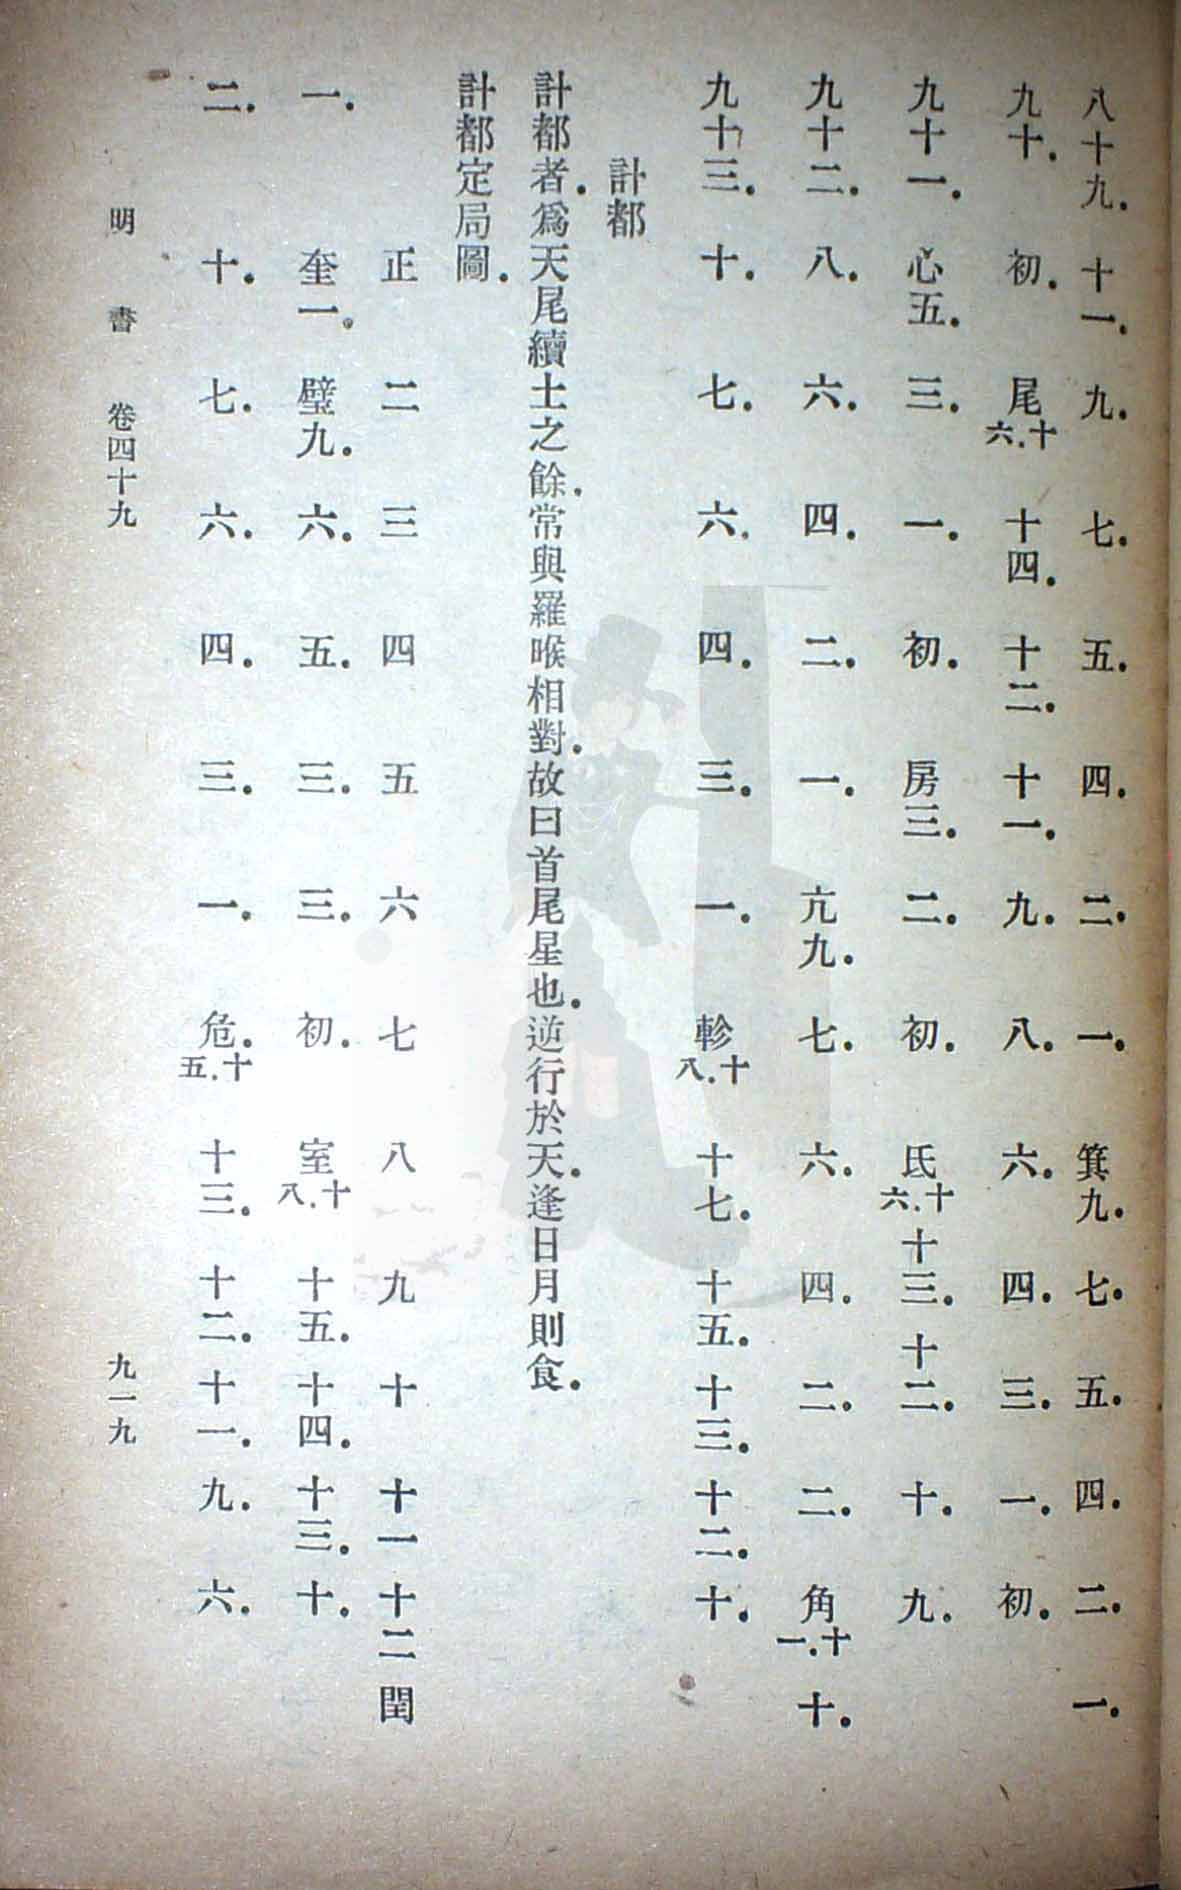 八十九．十一．九．七．五．四．二．一．箕九．七．五．四．二．一．
九十．初．尾十六．十四．十二．十一．九．八．六．四．三．一．初．
九十一．心五．三．一．初．房三．二．初．氐十六．十三．十二．十．九．
九十二．八．六．四．二．一．亢九．七．六．四．二．二．角十一．十．
九十三．十．七．六．四．三．一．軫十八．十七．十五．十三．十二．十．
計都
計都者．爲天尾續土之餘．常與羅㬋相對．故曰首尾星也．逆行於天．逢日月則食．
計都定局圖．
正 二 三 四 五 六 七 八 九 十 十一 十二 閏
一．奎一．壁九．六．五．三．三．初．室十八．十五．十四．十三．十．
二．十．七．六．四．三．一．危．十五．十三．十二．十一．九．六．
明書 卷四十九
九一九